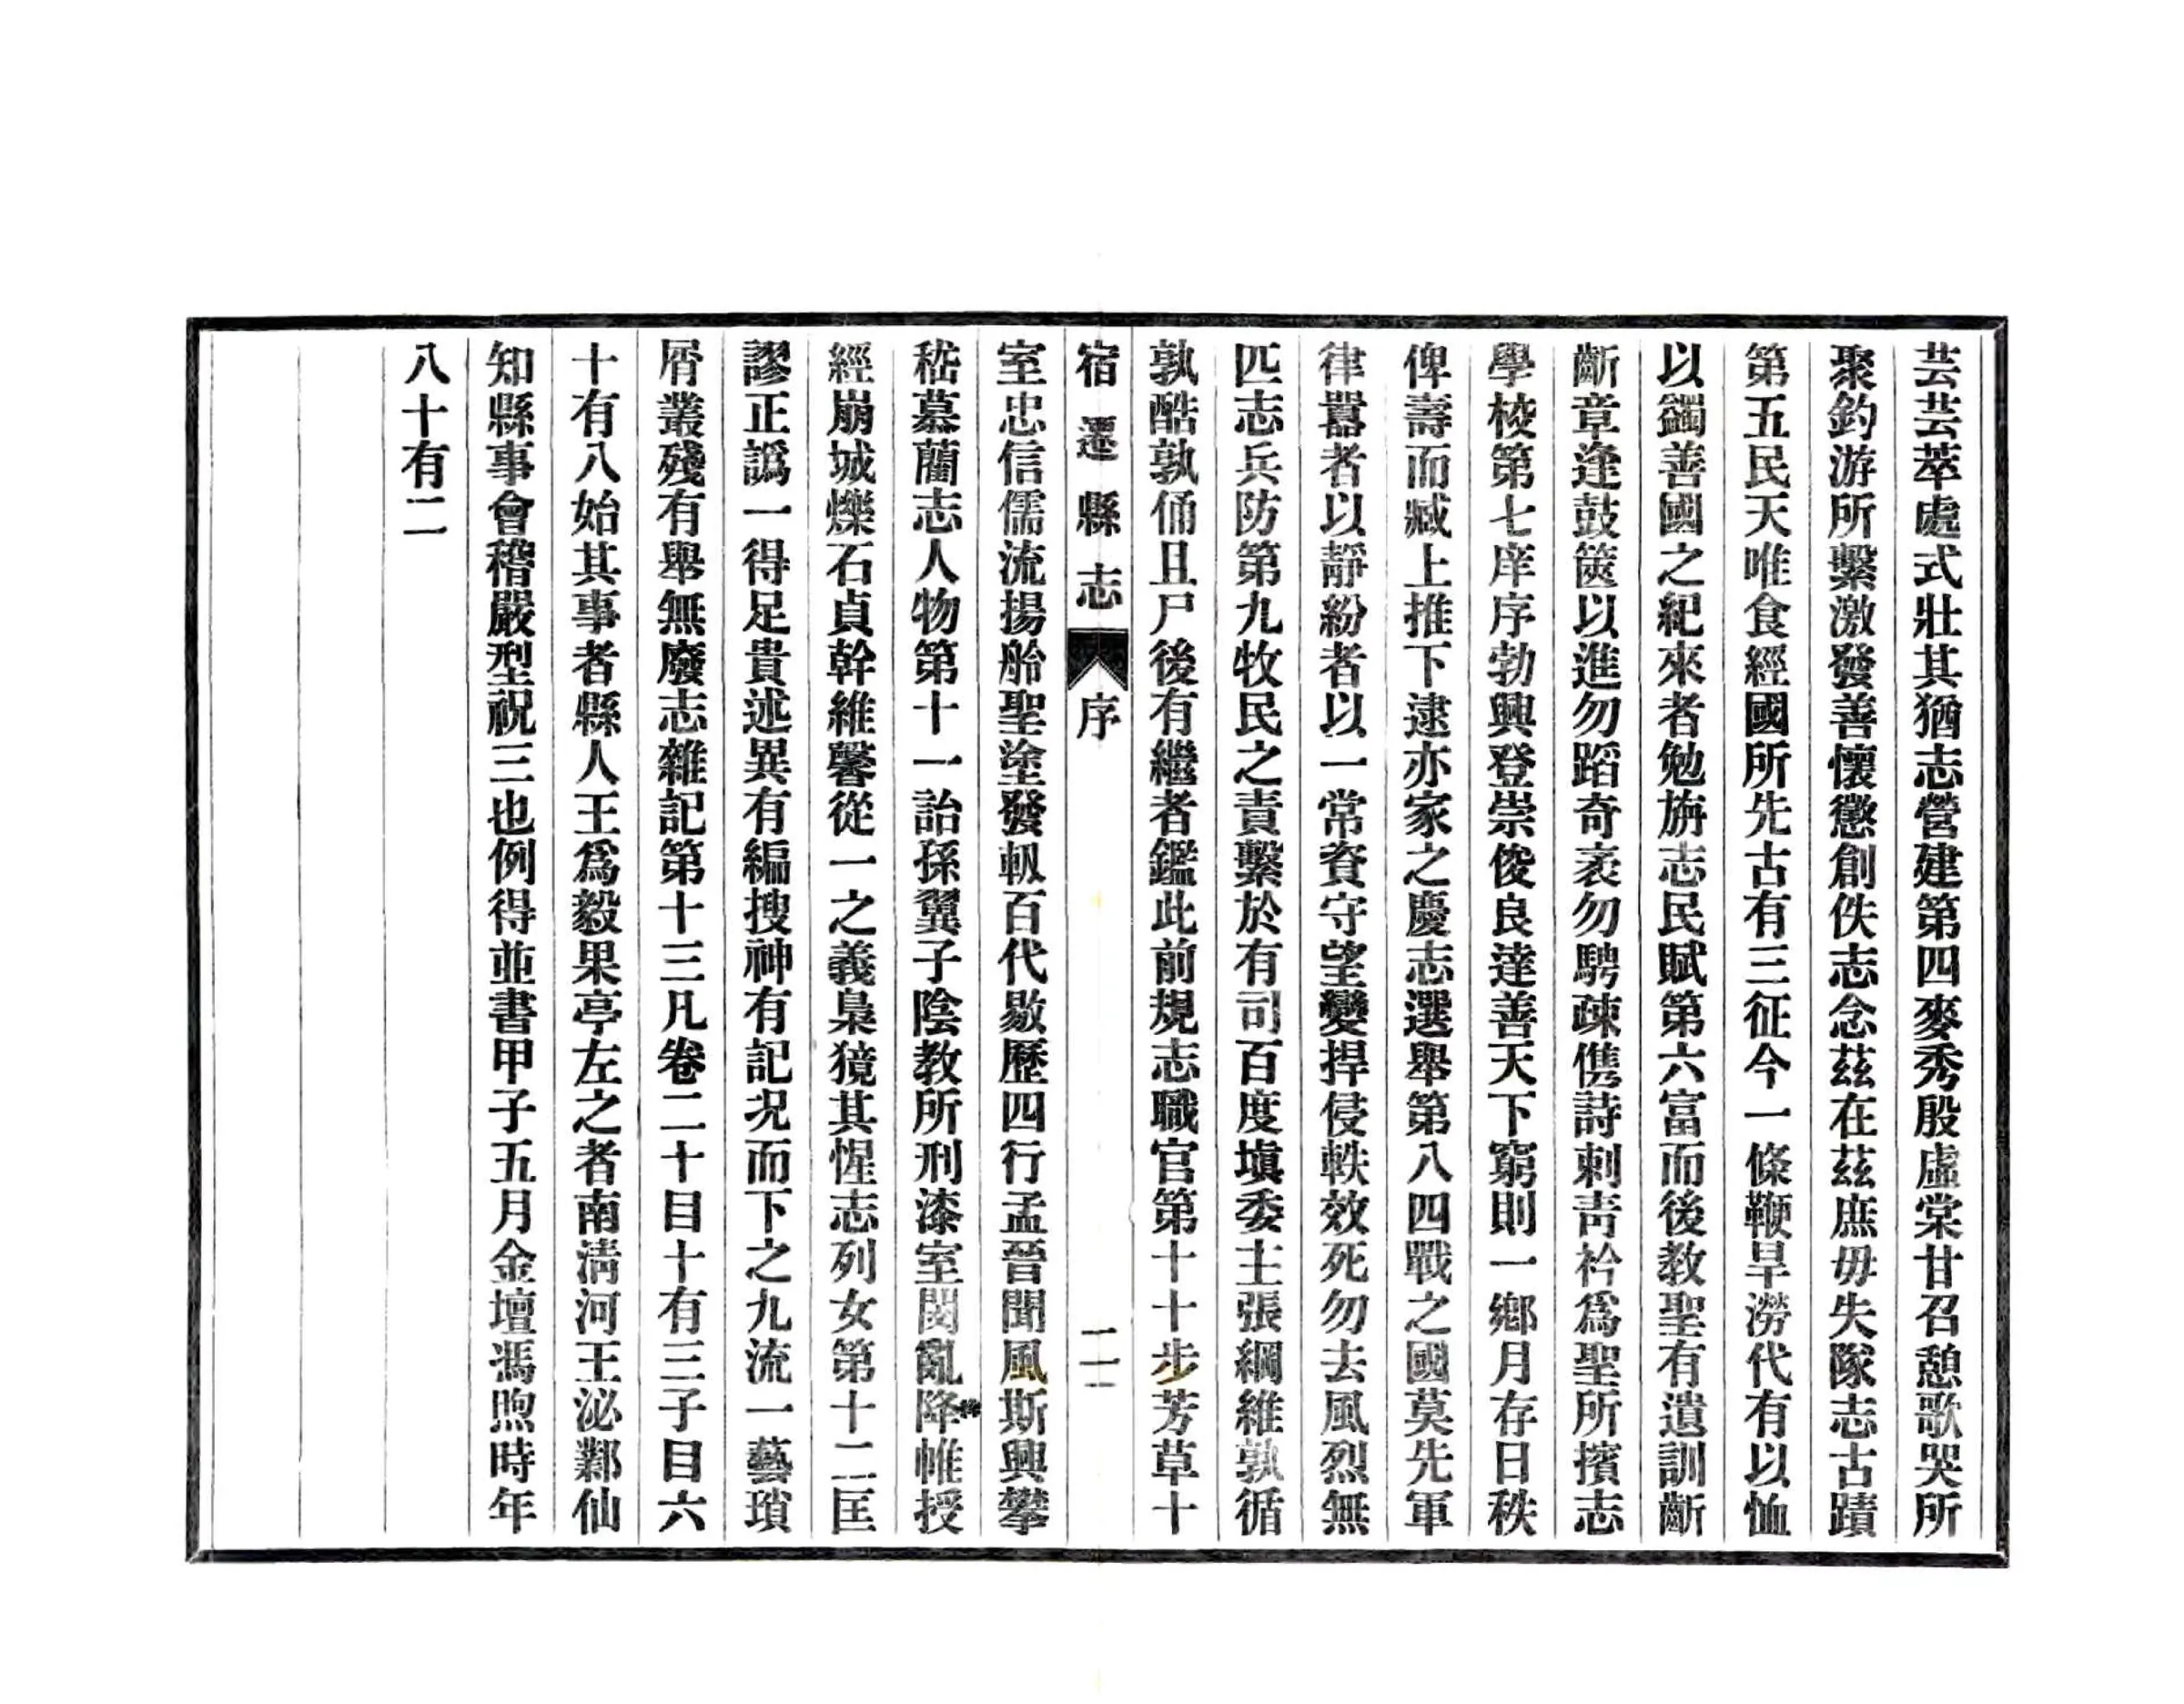 芸芸萃處式壯其猶志營建第四麥秀殷虛棠甘召憩歌哭所
聚釣游所繫激發善懷懲創佚志念茲在茲庶毋失隊志古蹟
第五民天唯食經國所先古有三征今一條鞭旱澇代有以恤
以蠲善國之紀來者勉旃志民賦第六富而後教聖有遺訓斷
斷章逢鼓篋以進勿蹈奇衺勿騁疎儁詩刺靑衿爲聖所擯志
學校第七庠序勃興登崇俊良達善天下窮則一鄉月存日秩
俾壽而臧上推下逮亦家之慶志選舉第八四戰之國莫先軍
律囂者以靜紛者以一常資守望變捍侵軼效死勿去風烈無
匹志兵防第九牧民之責繫於有司百度塡委主張綱維孰循
孰酷孰俑且尸後有繼者鑑此前規志職官第十十步芳草十
宿遷縣志 序 二
室忠信儒流揚舲聖塗發軔百代敭歷四行孟晉聞風斯興攀
嵇慕藺志人物第十一詒孫翼子陰敎所刑漆室閔亂降帷授
經崩城爍石貞幹維馨從一之義梟獍其惺志列女第十二匡
謬正譌一得足貴述異有編搜神有記况而下之九流一藝瑣
屑叢殘有舉無廢志雜記第十三凡卷二十目十有三子目六
十有八始其事者縣人王爲毅果亭左之者南淸河王泌鄴仙
知縣事會稽嚴型祝三也例得並書甲子五月金壇馮煦時年
八十有二